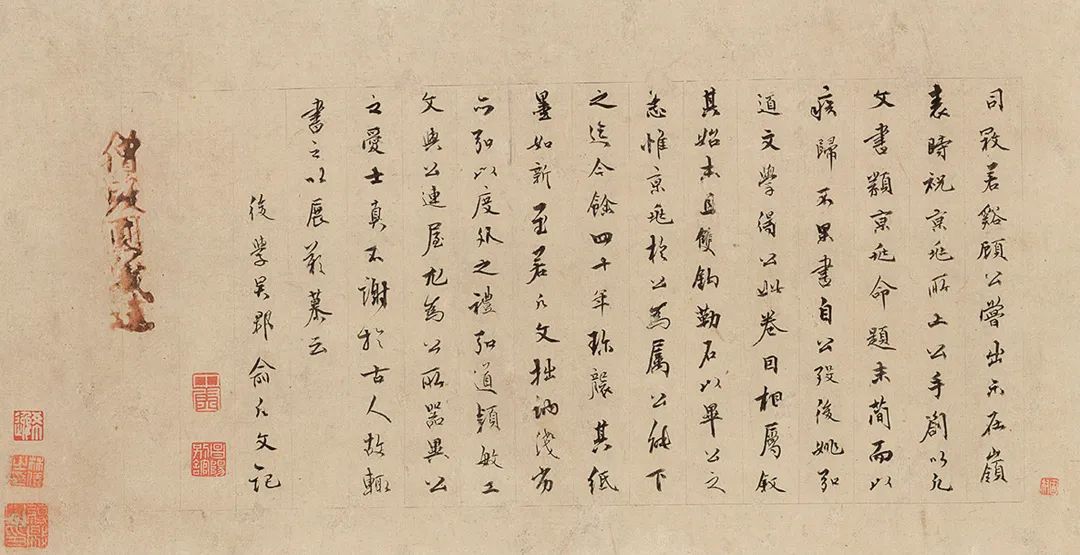 司寇若谿顧公嘗出示在嶺
表時祝京兆所上公手劄以允
文書類京兆命題末簡而以
疾歸不果書自公歿後姚弘
道文學得公此卷因相屬叙
其始末且雙鈎勒石以畢公之
志惟京兆於公為屬公能下
之迄今餘四十年珍襲其紙
墨如新至若允文拙訥淺劣
亦弘以度外之禮弘道穎敏工
文與公連屋尤為公所器異公
之愛士真不謝於古人故輒
書之以展歎慕云
後學吳郡俞允文記